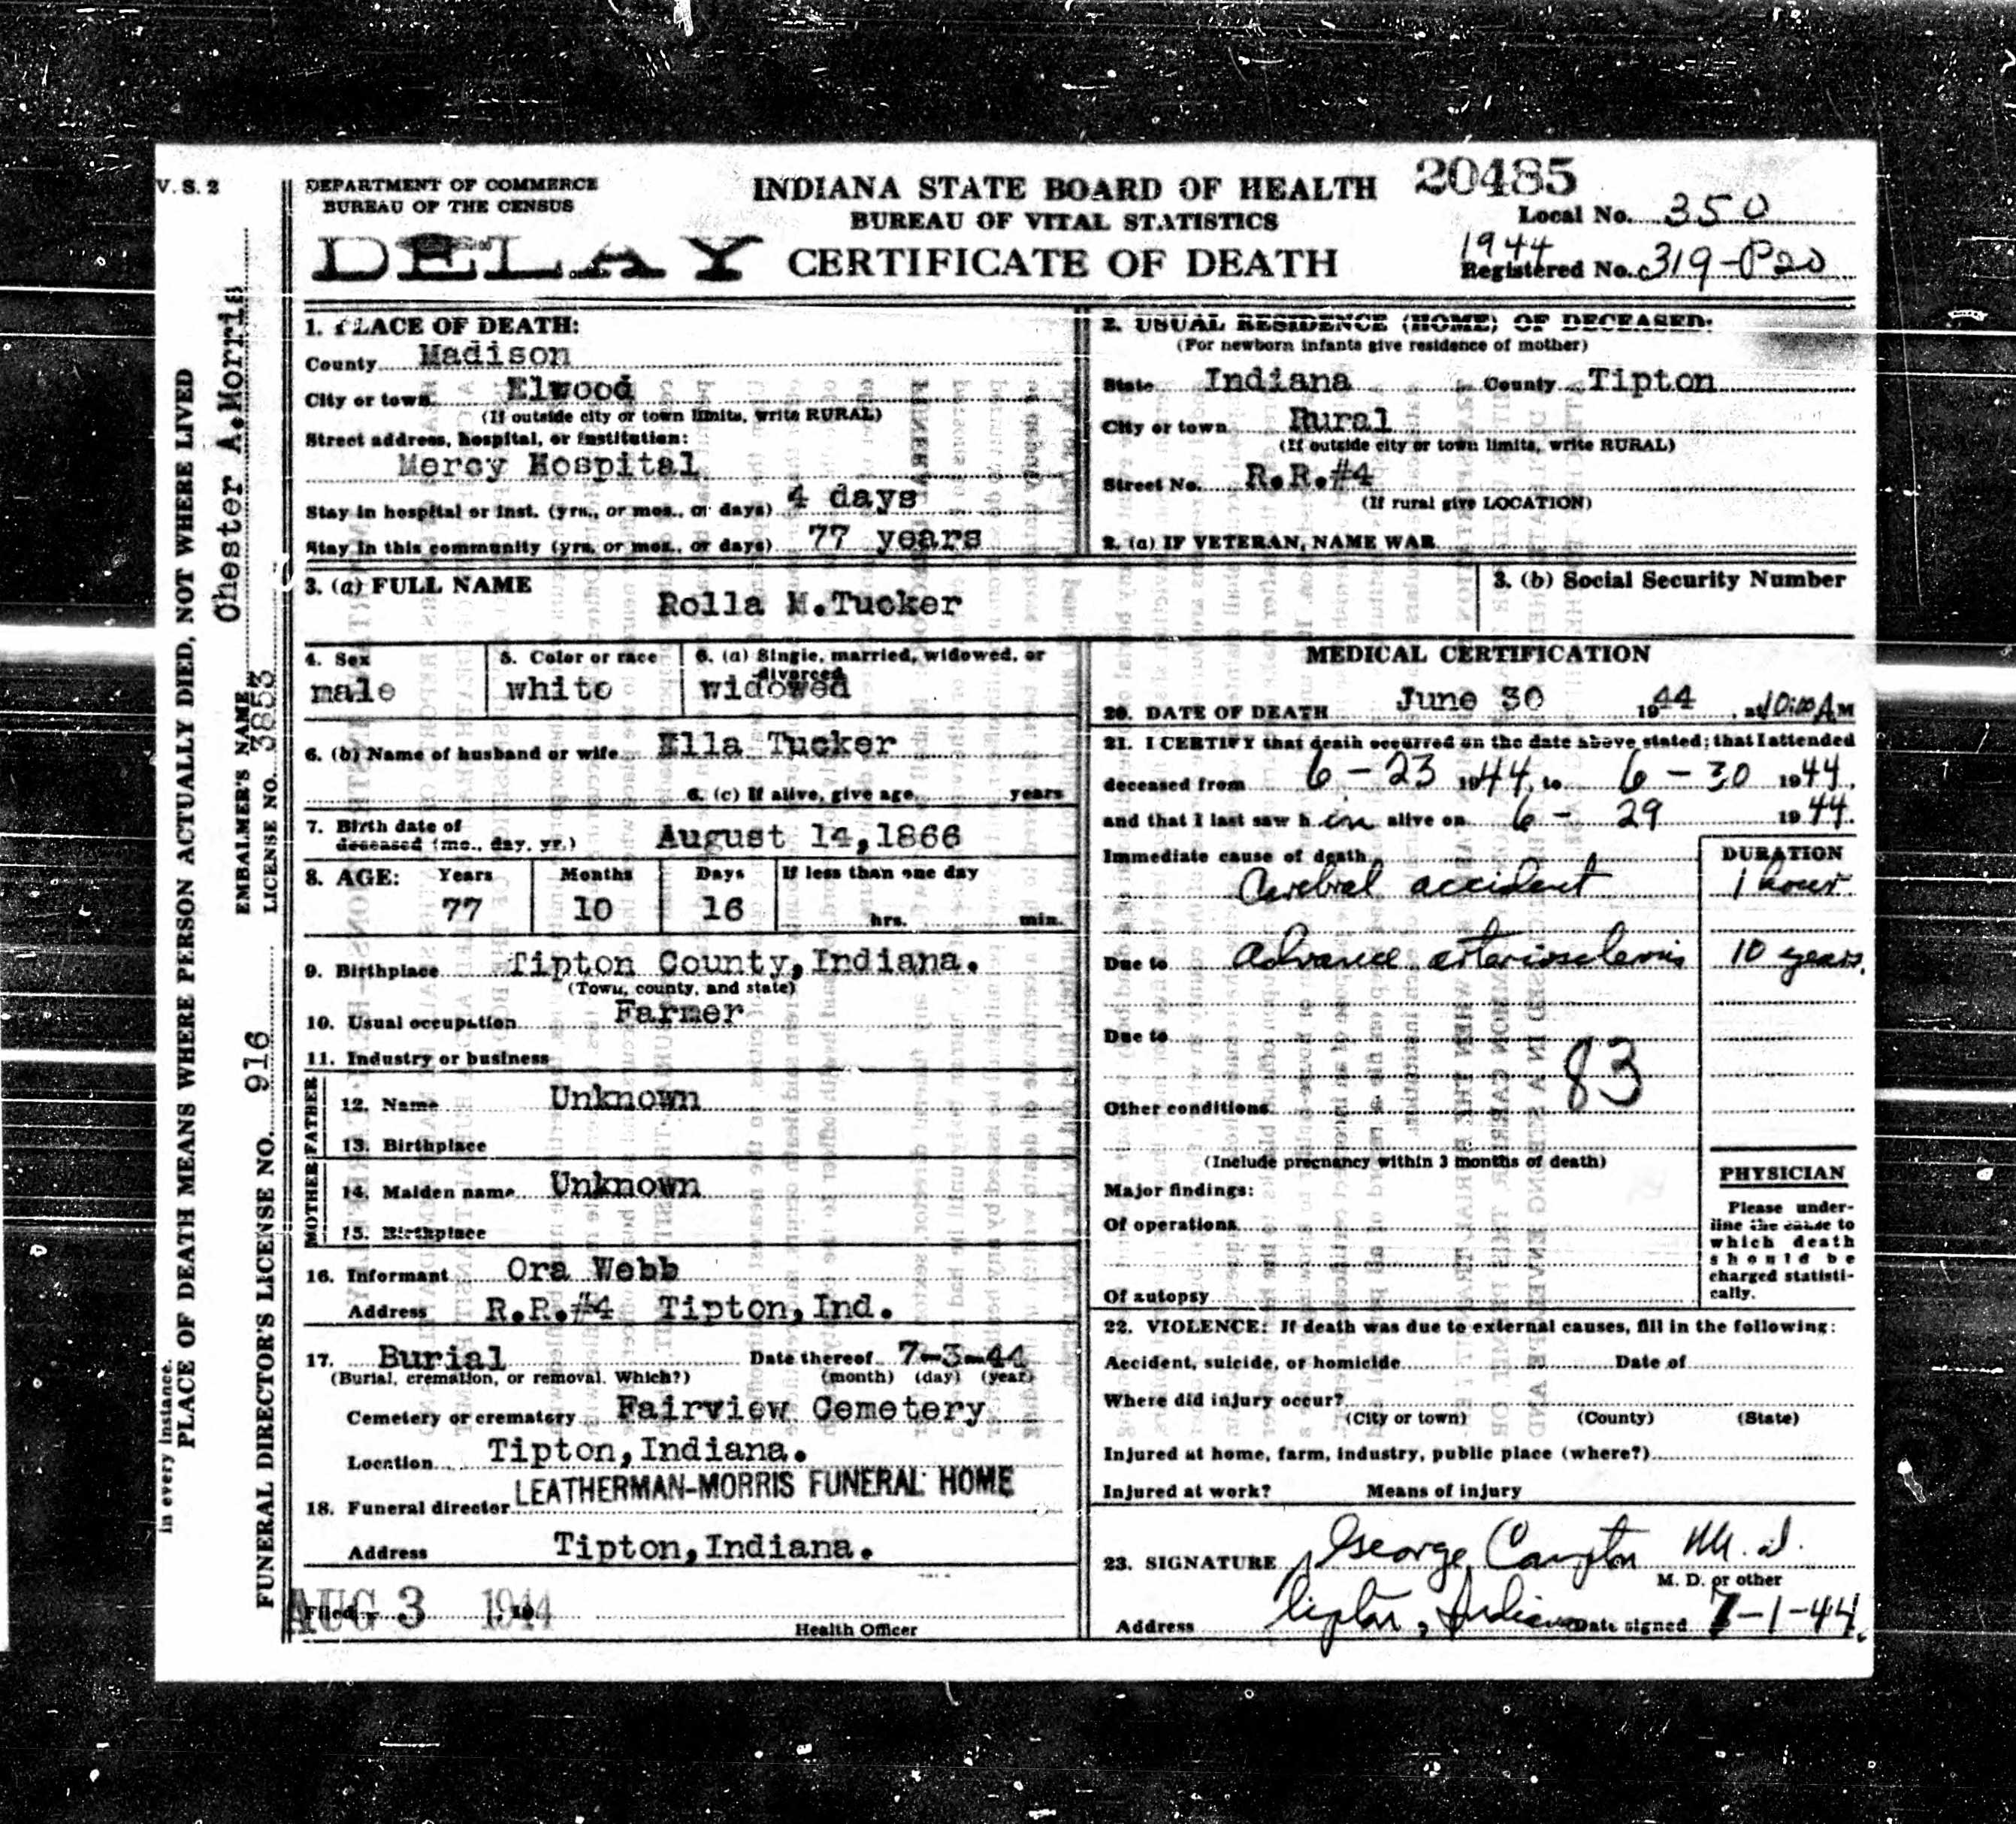 V. S. 2
DEPARTMENT OF COMMERCE
BUREAU OF THE CENSUS
DELAY
INDIANA STATE BOARD OF HEALTH
BUREAU OF VITAL STATISTICS
CERTIFICATE OF DEATH
20485
Local No. 350
1944
Registered No. 319-P20
1. PLACE OF DEATH:
County Madison
City or town Elwood
(If outside city or town limits, write RURAL)
Street address, hospital, or institution:
Mercy Hospital
Stay in hospital or inst. (yrs., or mos., or days) 4 days
Stay in this community (yrs. or mos., or days) 77 years
2. USUAL RESIDENCE (HOME) OF DECEASED:
(For newborn infants give residence of mother)
State Indiana County Tipton
City or town Rural
(If outside city or town limits, write RURAL)
Street No. R.R.#4
(If rural give LOCATION)
2. (a) IF VETERAN, NAME WAR
3. (a) FULL NAME Rolla M.Tucker
3. (b) Social Security Number
4. Sex male
5. Color or race white
6. (a) Single, married, widowed, or divorced widowed
6. (b) Name of husband or wife Ella Tucker
6. (c) If alive, give age years
7. Birth date of deceased (mo., day, yr.) August 14,1866
8. AGE: Years Months Days If less than one day
77 10 16 hrs. min.
9. Birthplace Tipton County, Indiana.
(Town, county, and state)
10. Usual occupation Farmer
11. Industry or business
FATHER
12. Name Unknown
13. Birthplace
MOTHER
14. Maiden name Unknown
15. Birthplace
16. Informant Ora Webb
Address R.R.#4 Tipton, Ind.
17. Burial Date thereof 7-3-44
(Burial, cremation, or removal. Which?) (month) (day) (year)
Cemetery or crematory Fairview Cemetery
Location Tipton, Indiana.
18. Funeral director LEATHERMAN-MORRIS FUNERAL HOME
Address Tipton, Indiana.
Filed AUG 3 1944
Health Officer
MEDICAL CERTIFICATION
20. DATE OF DEATH June 30 1944, at 10:00 A M
21. I CERTIFY that death occurred on the date above stated; that I attended
deceased from 6-23 1944, to 6-30 1944,
and that I last saw h im alive on 6-29 1944.
Immediate cause of death DURATION
Cerebral accident 1 hour
Due to Advance arteriosclerosis 10 years.
Due to
83
Other conditions
(Include pregnancy within 3 months of death)
Major findings:
Of operations
Of autopsy
PHYSICIAN
Please under-
line the cause to
which death
should be
charged statisti-
cally.
22. VIOLENCE: If death was due to external causes, fill in the following:
Accident, suicide, or homicide Date of
Where did injury occur?
(City or town) (County) (State)
Injured at home, farm, industry, public place (where?)
Injured at work? Means of injury
23. SIGNATURE George Compton M.D.
M. D. or other
Address Tipton, Indiana Date signed 7-1-44.
in every instance.
PLACE OF DEATH MEANS WHERE PERSON ACTUALLY DIED, NOT WHERE LIVED
Chester A.Morris
EMBALMER'S NAME
LICENSE NO. 3853
FUNERAL DIRECTOR'S LICENSE NO. 916